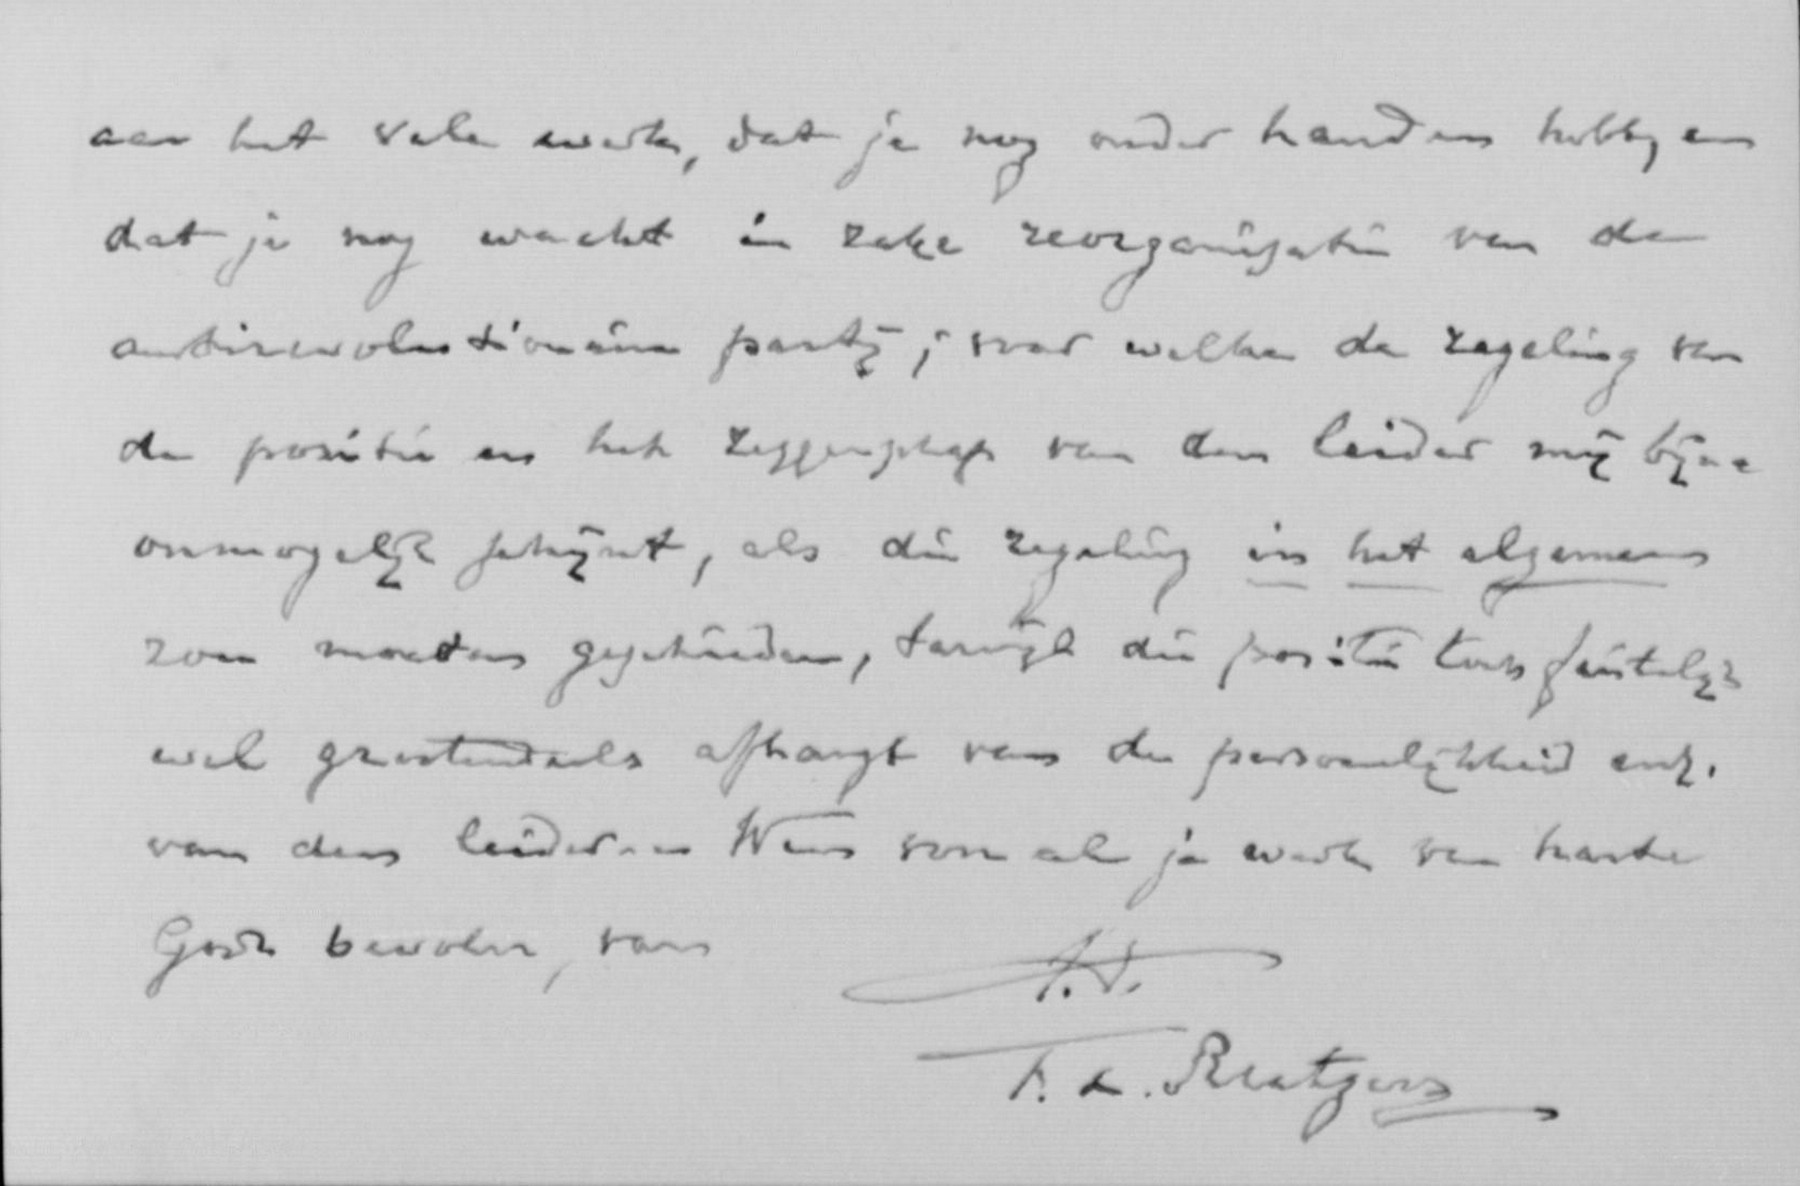 aan het vele werk, dat je nog onder handen hebt, en
dat je nog wacht in zake reorganisatie van de
antirevolutionaire partij; voor welke de regeling van
de positie en het zeggenschap van den leider mij bijna
onmogelijk schijnt, als die regeling in het algemeen
zou moeten geschieden, terwijl die positie toch feitelijk
wel grootendeels afhangt van de persoonlijkheid enz.
van den leider. Wees voor al je werk van harte
Gode bevolen, van
t.t.
F. L. Rutgers